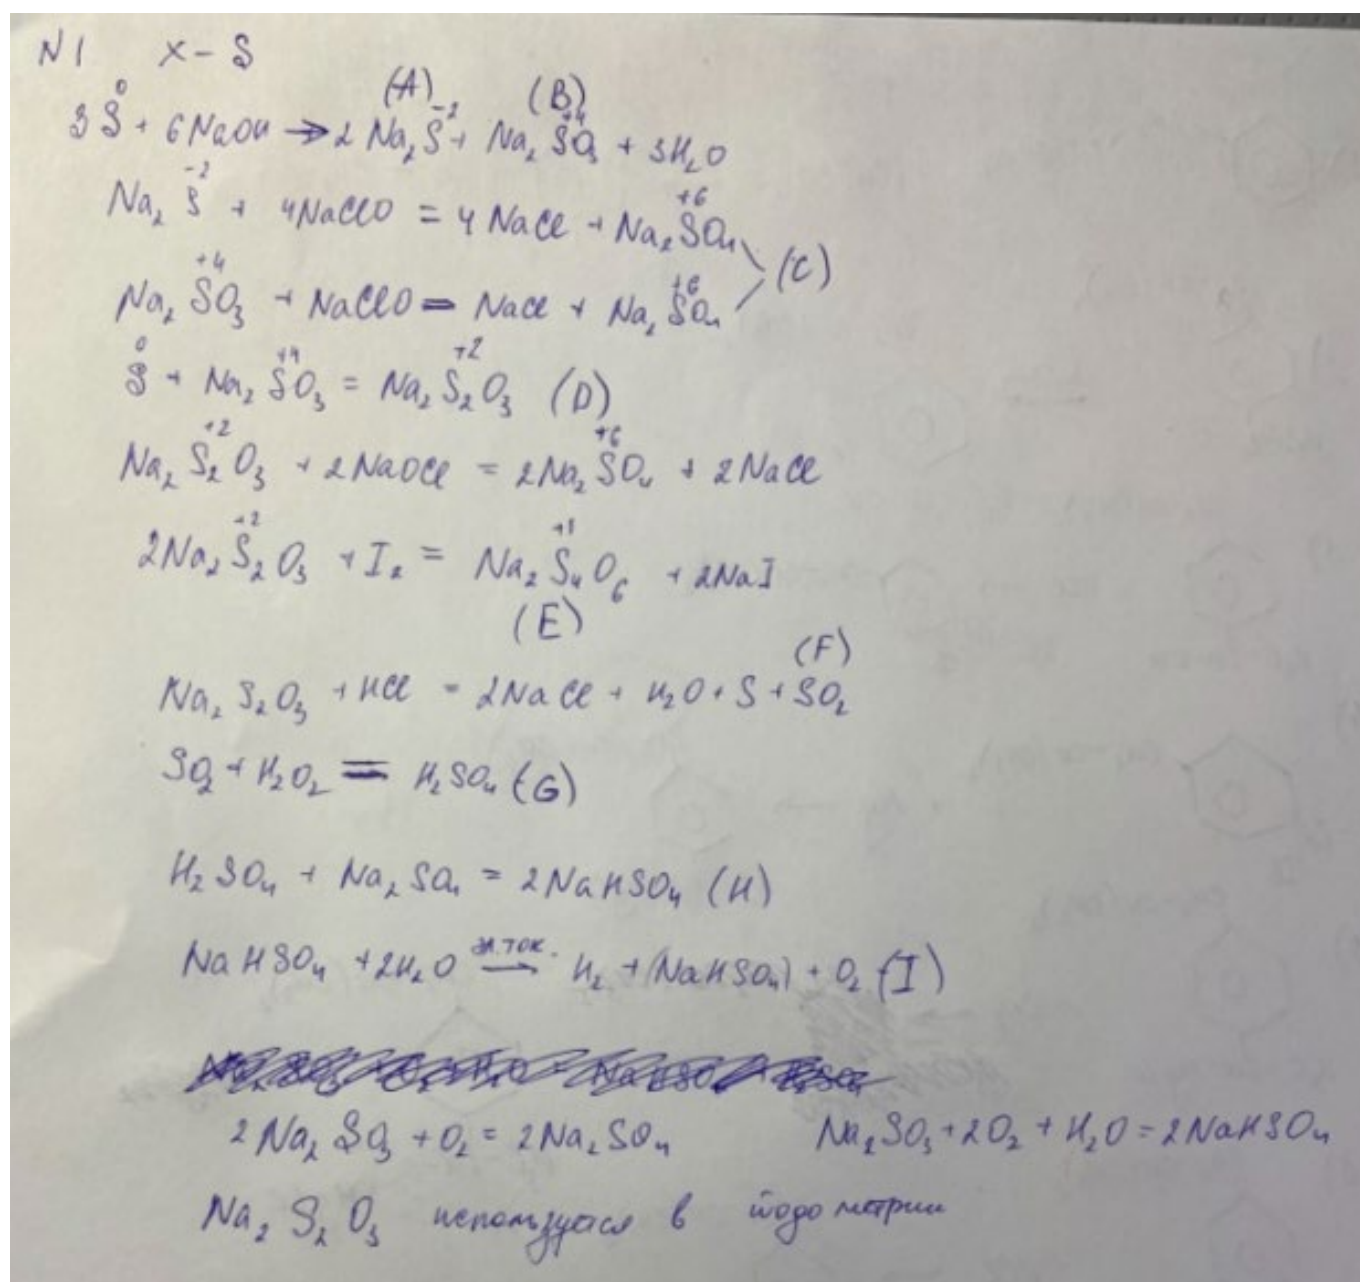 N1 X – S
3S⁰ + 6NaOH → 2Na₂S⁻² (A) + Na₂S⁺⁴O₃ (B) + 3H₂O
Na₂S⁻² + 4NaClO = 4NaCl + Na₂S⁺⁶O₄
Na₂S⁺⁴O₃ + NaClO = NaCl + Na₂S⁺⁶O₄ (C)
S⁰ + Na₂S⁺⁴O₃ = Na₂S₂⁺²O₃ (D)
Na₂S₂⁺²O₃ + 2NaOCl = 2Na₂S⁺⁶O₄ + 2NaCl
2Na₂S₂⁺²O₃ + I₂ = Na₂S₄O₆ + 2NaI
(E)
Na₂S₂O₃ + HCl = 2NaCl + H₂O + S + SO₂ (F)
SO₂ + H₂O₂ = H₂SO₄ (G)
H₂SO₄ + Na₂SO₄ = 2NaHSO₄ (H)
NaHSO₄ + 2H₂O эл.ток. → H₂ + (NaHSO₄) + O₂ (I)
2Na₂SO₃ + O₂ = 2Na₂SO₄ Na₂SO₃ + 2O₂ + H₂O = 2NaHSO₄
Na₂S₂O₃ используется в йодометрии